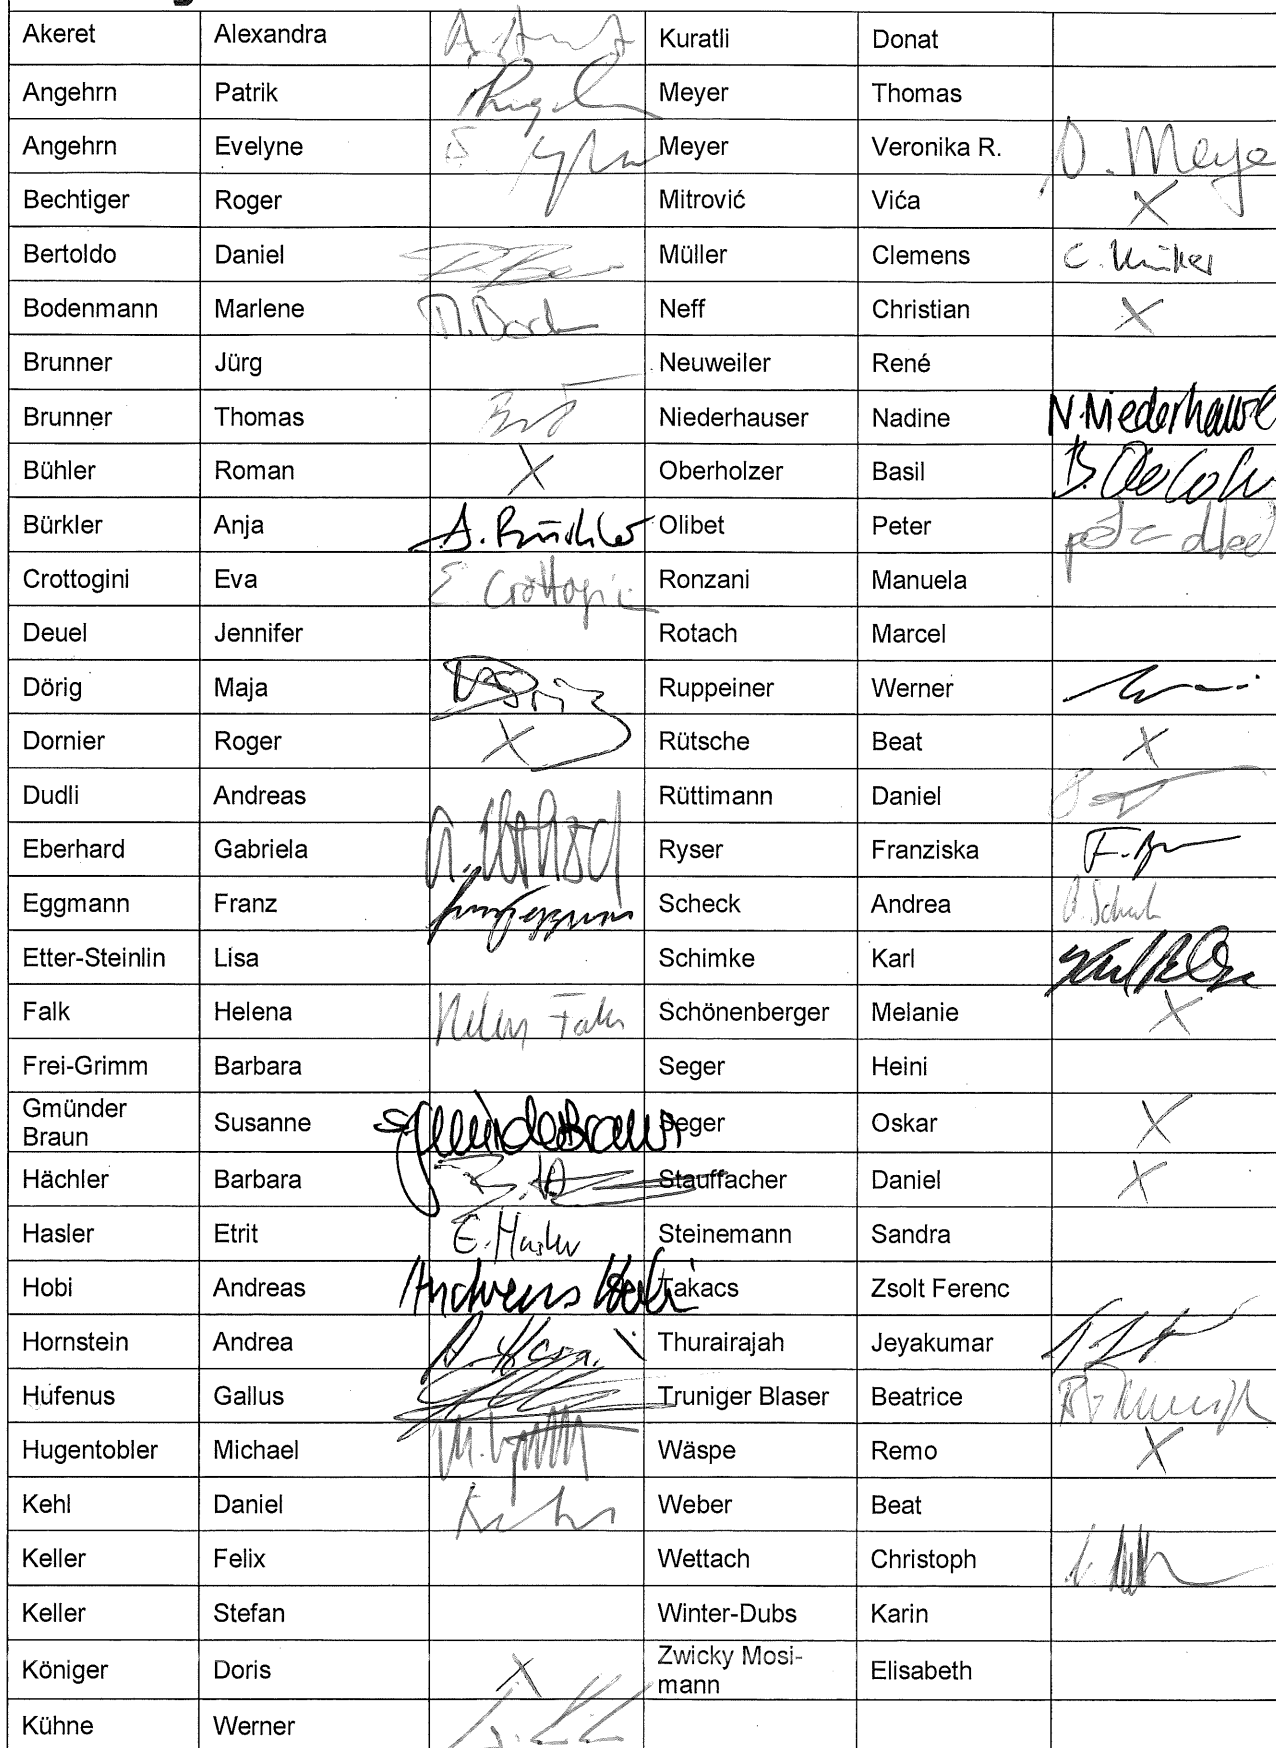 Akeret Alexandra Kuratli Donat
Angehrn Patrik Meyer Thomas
Angehrn Evelyne Meyer Veronika R. Meye
Bechtiger Roger Mitrović Vića X
Bertoldo Daniel Müller Clemens
Bodenmann Marlene Neff Christian X
Brunner Jürg Neuweiler René
Brunner Thomas Niederhauser Nadine N. Niederhause
Bühler Roman X Oberholzer Basil
Bürkler Anja Olibet Peter
Crottogini Eva E. Crottogini Ronzani Manuela
Deuel Jennifer Rotach Marcel
Dörig Maja Ruppeiner Werner
Dornier Roger X Rütsche Beat X
Dudli Andreas Rüttimann Daniel
Eberhard Gabriela Ryser Franziska
Eggmann Franz Scheck Andrea
Etter-Steinlin Lisa Schimke Karl
Falk Helena Schönenberger Melanie X
Frei-Grimm Barbara Seger Heini
Gmünder
Braun Susanne Seger Oskar X
Hächler Barbara Stauffacher Daniel X
Hasler Etrit E. Hasler Steinemann Sandra
Hobi Andreas Andreas Hobi Takacs Zsolt Ferenc
Hornstein Andrea Thurairajah Jeyakumar
Hufenus Gallus Truniger Blaser Beatrice
Hugentobler Michael Wäspe Remo X
Kehl Daniel Weber Beat
Keller Felix Wettach Christoph
Keller Stefan Winter-Dubs Karin
Königer Doris X Zwicky Mosi-
mann Elisabeth
Kühne Werner